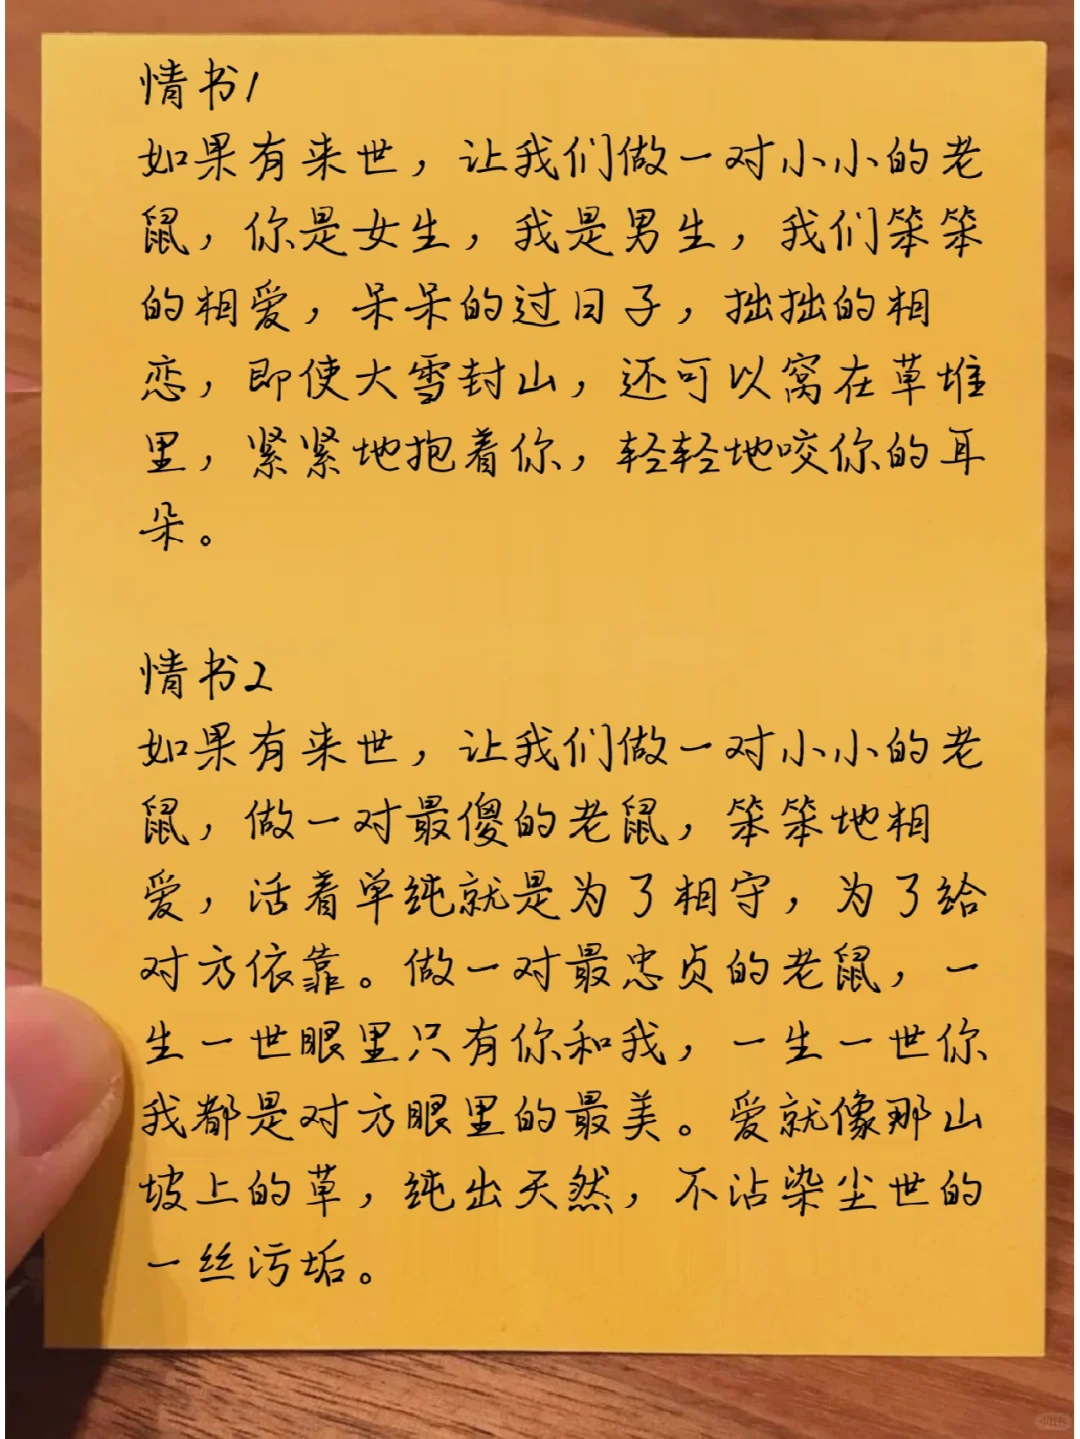 情书1
如果有来世，让我们做一对小小的老
鼠，你是女生，我是男生，我们笨笨
的相爱，呆呆的过日子，拙拙的相
恋，即使大雪封山，还可以窝在草堆
里，紧紧地抱着你，轻轻地咬你的耳
朵。
情书2
如果有来世，让我们做一对小小的老
鼠，做一对最傻的老鼠，笨笨地相
爱，活着单纯就是为了相守，为了给
对方依靠。做一对最忠贞的老鼠，一
生一世眼里只有你和我，一生一世你
我都是对方眼里的最美。爱就像那山
坡上的草，纯出天然，不沾染尘世的
一丝污垢。
小红书